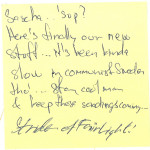 Sascha...'sup?
Here's finally our new
stuff... It's been kinda
slow in communist Sweden
tho'... Stay cool man
& keep those sendings coming...
of Fairlight!